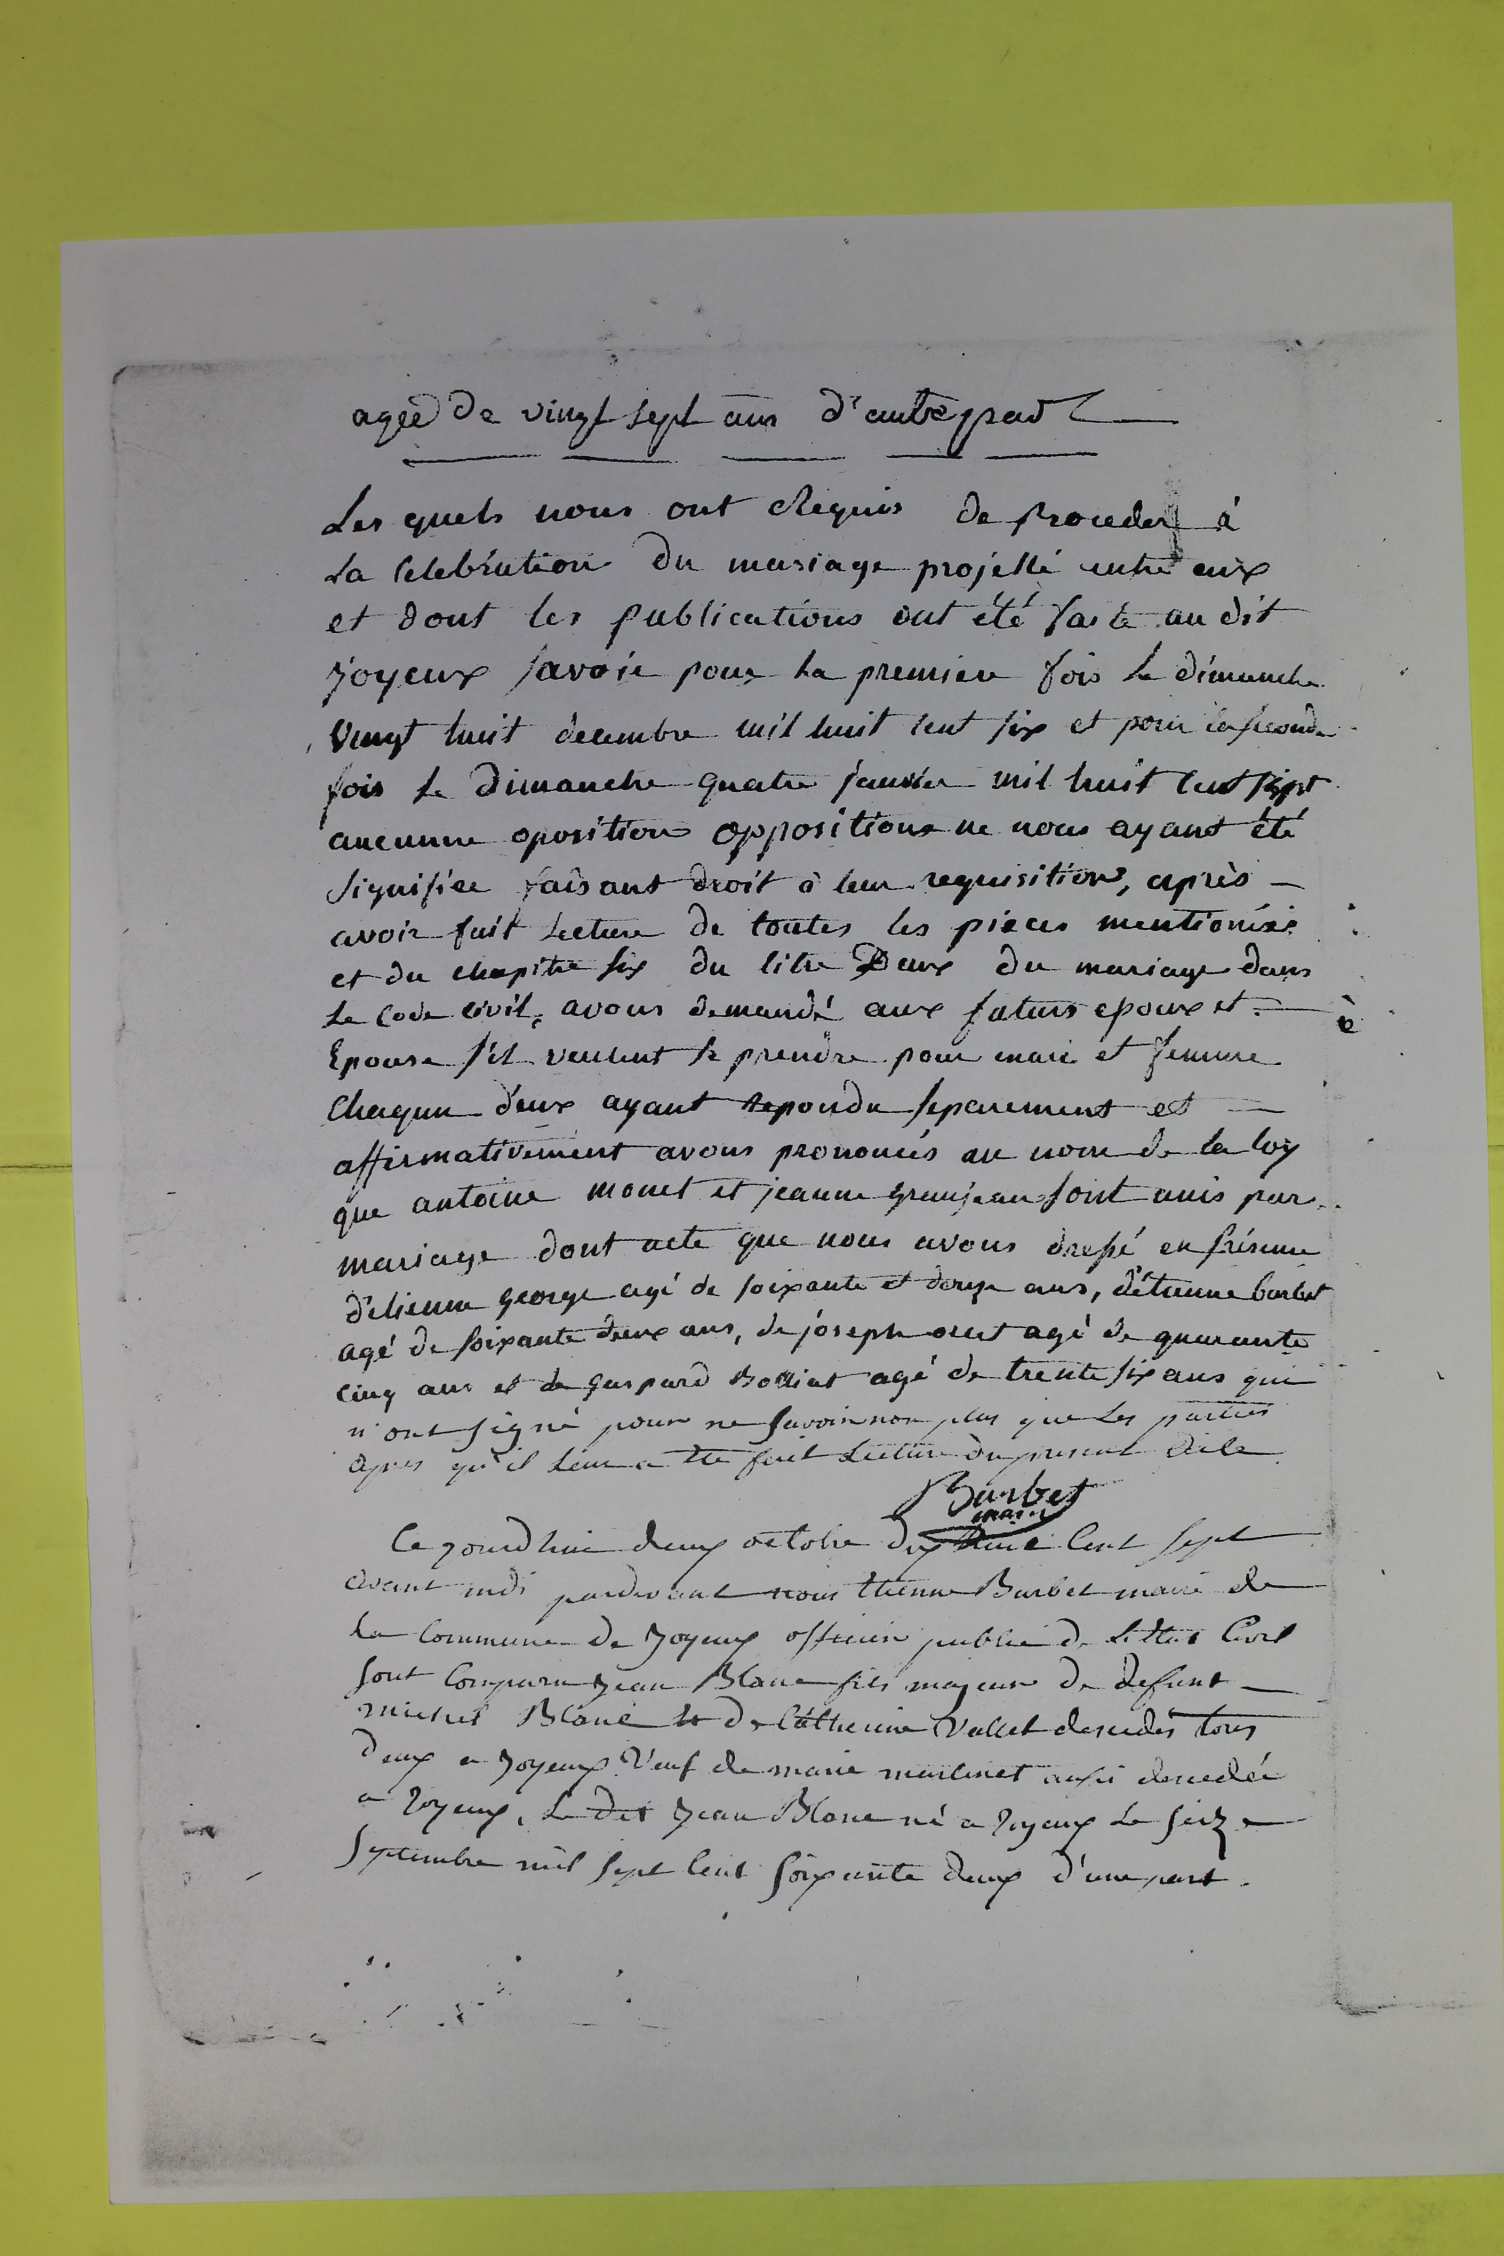 ageé de vingt sept ans d'autre part
Les quels nous ont Requis de proceder à
La Celebration du mariage projetté entre eux
et dont les publications ont été faite au dit
joyeux savoir pour la premiere fois le dimanche
vingt huit decembre mil huit cent six et pour la seconde
fois le dimanche quatre janvier mil huit cent sept
aucunne oposition oppositions ne nous ayant été
signifiée faisant droit à leur requisition, après
avoir fait lecture de toutes les pieces mentionées
et du chapitre six du titre Deux du mariage dans
le Code civil, avons demandé aux futurs epoux et
Epouse s'il veulent se prendre pour mari et femme
Chaqun d'eux ayant repondu separement et
affirmativement avons prononcés au nom de la loy
que antoine monet et jeanne granjean sont unis par
mariage dont acte que nous avons dressé en présence
d'etienne george agé de soixante et douze ans, d'étienne barbet
agé de soixante deux ans, de joseph agé de quarante
cinq ans et de gaspard agé de trente six ans qui
n'ont signé pour ne savoir non plus que les parties
apres qu'il leur a été fait lecture du present acte
Barbet
maire
Ce jourd'hui deux octobre dix huit Cent sept
avant midi pardevant nous Etienne Barbet maire de
la Commune de Joyeux officier public de l'Etat Civil
sont Comparu Jean Blanc fils majeur de defunt
michel Blanc et de Catherine Vallet decedés tous
deux a Joyeux Veuf de marie martinet aussi decedée
a Joyeux, Le dit Jean Blanc né a Joyeux le seize
septembre mil sept Cent soixante deux d'une part.